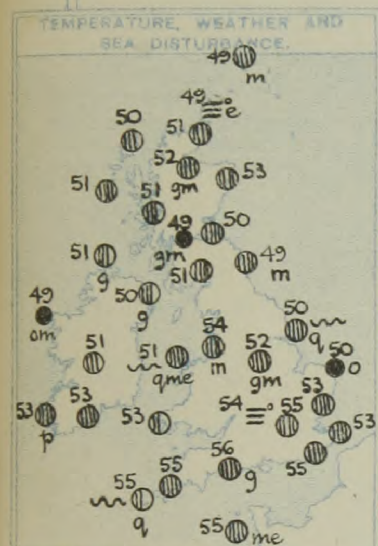 TEMPERATURE, WEATHER AND
SEA DISTURBANCE.
49
m
49
e
50
51
52
gm
53
51
51
49
gm
50
51
g
51
49
m
50
g
49
om
50
q
51
51
qme
54
m
52
gm
50
o
53
p
53
53
54
55
53
53
55
56
g
55
55
q
55
me